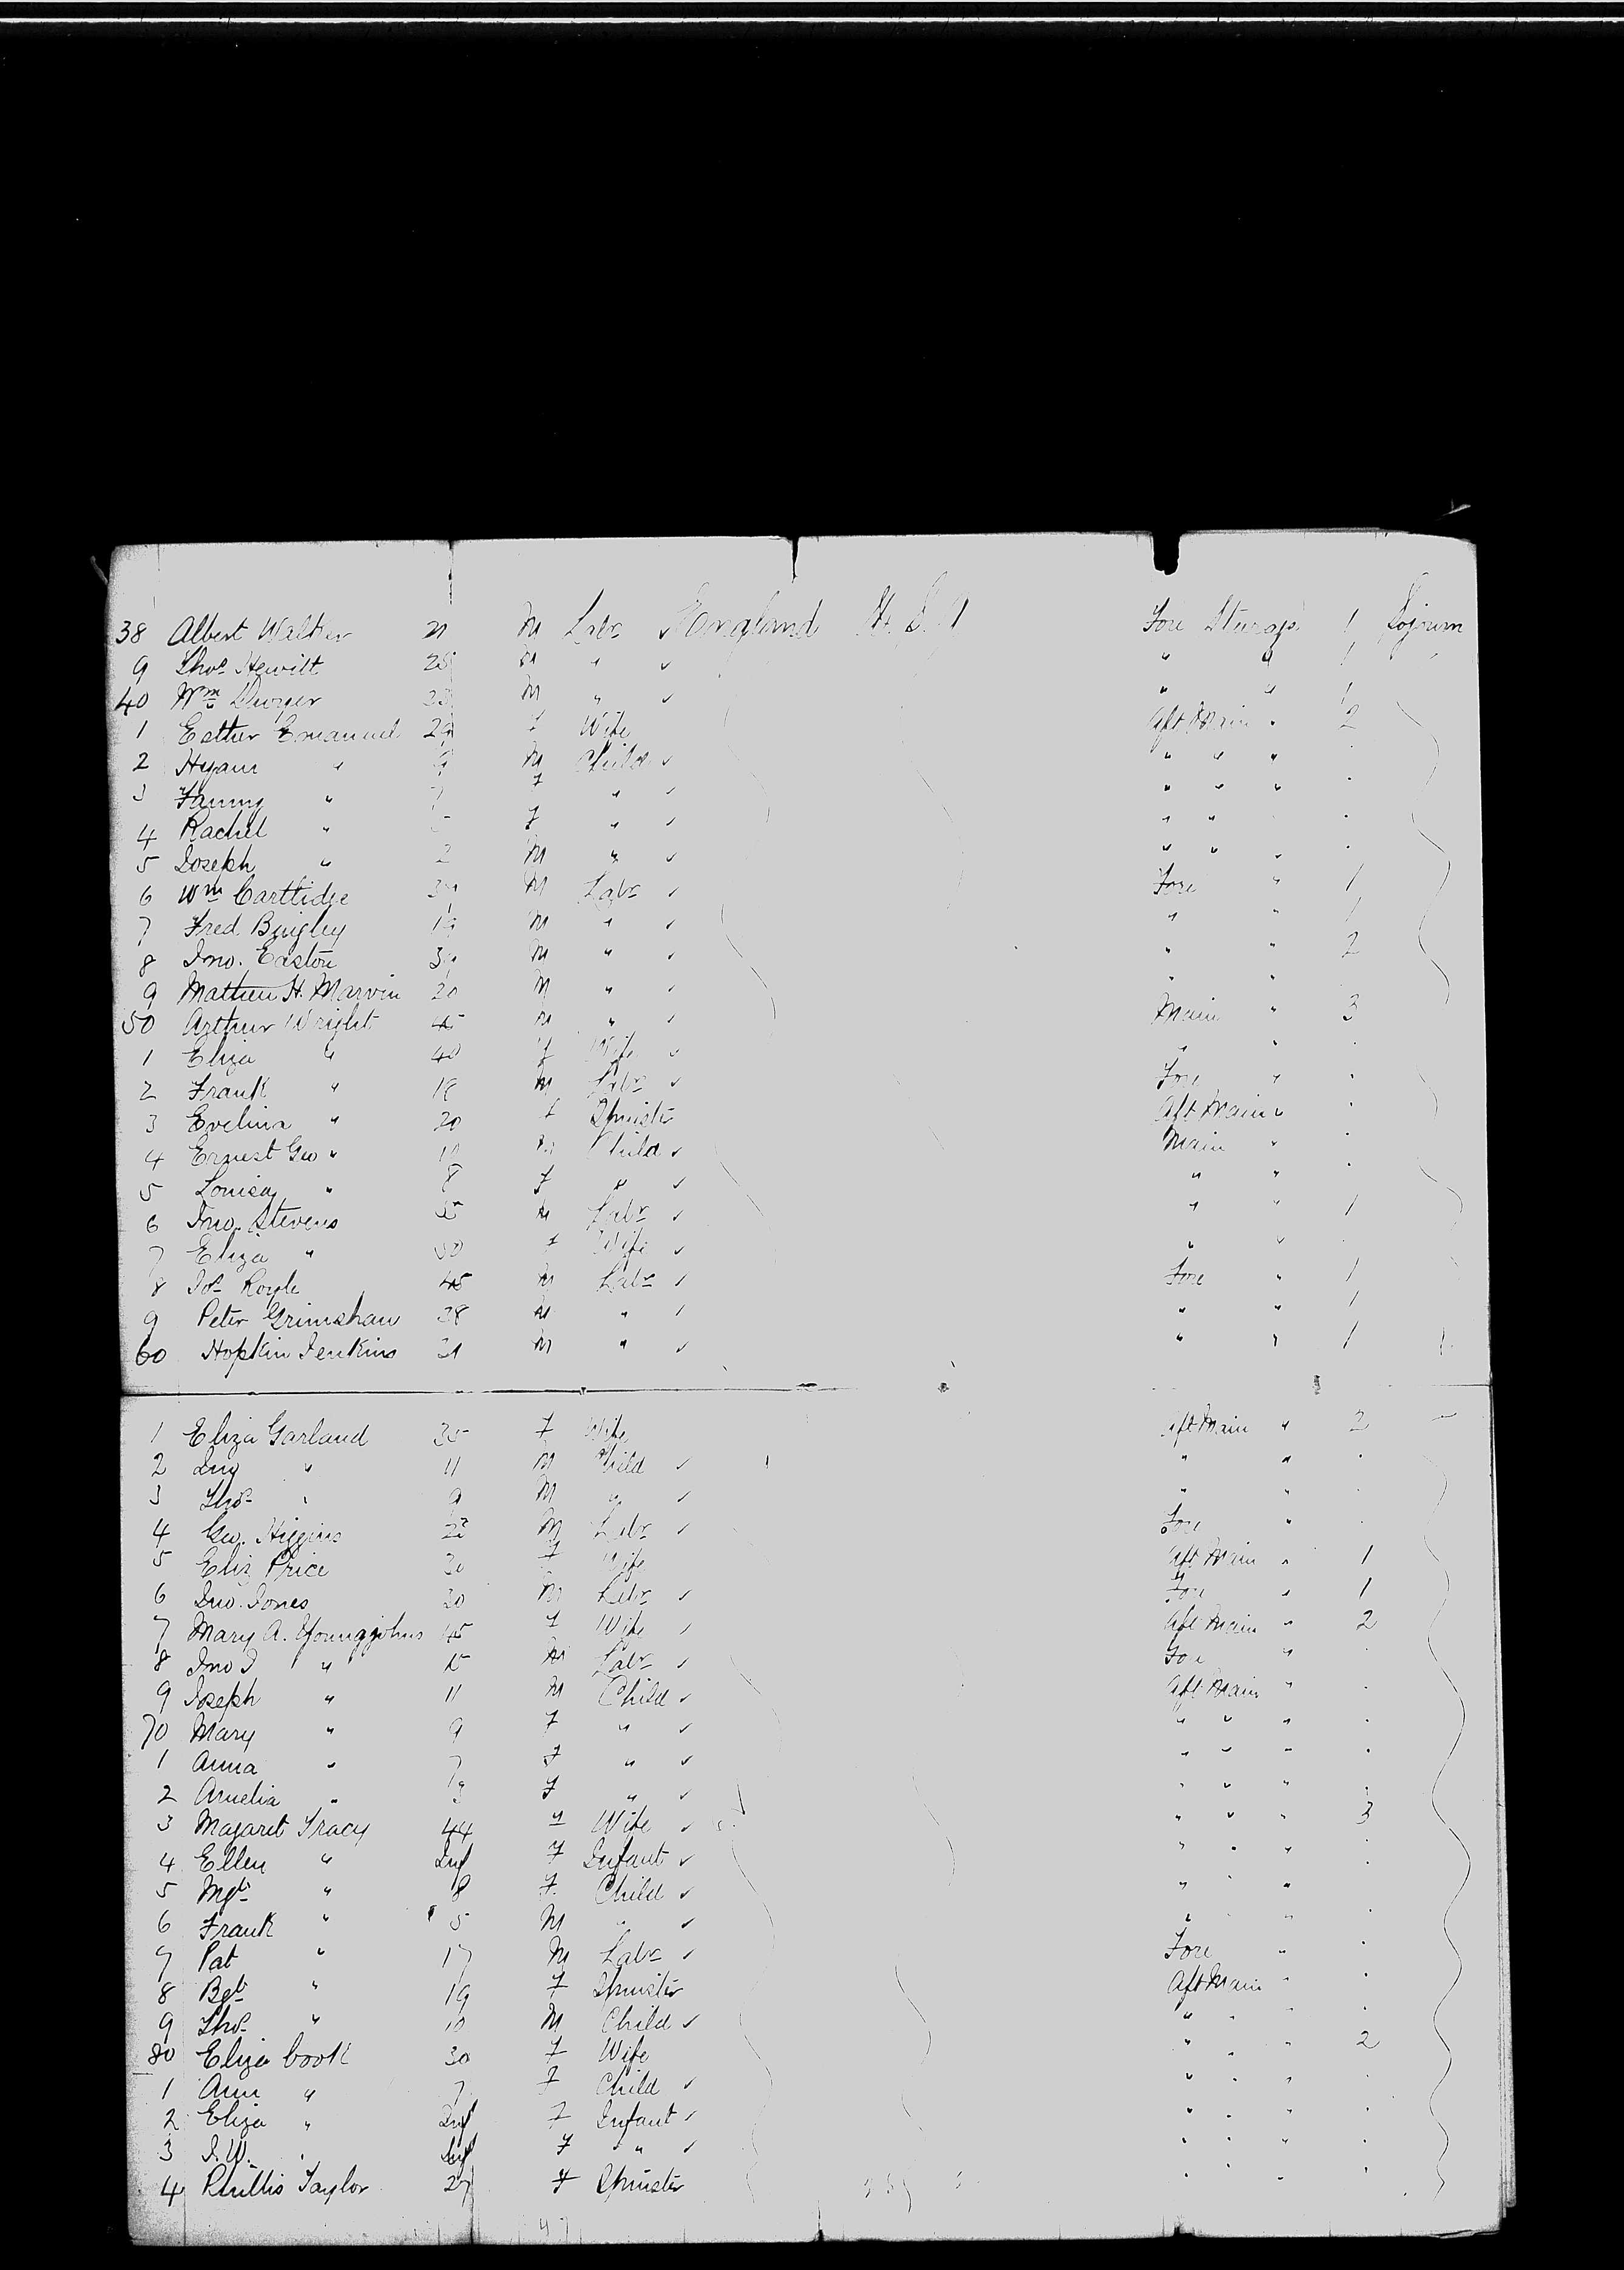 38 Albert Walker 21 M Labr ✓ England U. S. A Fore Sturage 1 Sojourn
9 Thos Hewitt 28 M " ✓ " " 1
40 Wm Dwyer 23 M " ✓ " " 1
1 Esther Emanuel 29 F Wife Aft Main " 2
2 Hyam " 9 M Child ✓ " " "
3 Fanny " 7 F " ✓ " " "
4 Rachel " F " ✓ " "
5 Joseph " 2 M " ✓ " " "
6 Wm Carttidge M Labr ✓ Fore " 1
7 Fred Bingley 19 M " ✓ " " 1
8 Jno. Easton M " ✓ " " 2
9 Mathew H. Marvin 20 M " ✓ " "
50 Arthur Wright 45 M " ✓ Main " 3
1 Eliza " 40 F Wife ✓ " "
2 Frank " 18 M Labr ✓ Fore "
3 Evelina " 20 F Spinster Aft Main "
4 Ernest Geo " M Child ✓ Main "
5 Louisa " 8 F " ✓ " "
6 Jno. Stevens 35 M Labr ✓ " " 1
7 Eliza " 30 F Wife ✓ " "
8 Jos Royle 45 M Labr ✓ Fore " 1
9 Peter Grimshaw 38 M " ✓ " " 1
60 Hopkin Jenkins 31 M " ✓ " " 1
1 Eliza Garland 35 F Wife Aft Main " 2
2 Jno " 11 M Child ✓ " "
3 Thos " 9 M " ✓ " "
4 Geo. Higgins 22 M Labr ✓ Fore "
5 Eliz Price 30 F Wife Aft Main " 1
6 Jno. Jones 20 M Labr ✓ Fore " 1
7 Mary A. Youngjohns 45 F Wife ✓ Aft Main " 2
8 Jno J " 15 M Labr ✓ Fore "
9 Joseph " 11 M Child ✓ Aft Main "
70 Mary " 9 F " ✓ " " "
1 Anna " 7 F " ✓ " " "
2 Amelia " 3 F " ✓ " " "
3 Magaret Tracy 44 F Wife ✓ " " " 3
4 Ellen " Inf F Infant ✓ " " "
5 Mgt " 8 F Child ✓ " " "
6 Frank " 5 M " ✓ " "
7 Pat " 17 M Labr ✓ Fore "
8 Bgt " 19 F Spinster Aft Main "
9 Thos " 10 M Child ✓ " " "
80 Eliza Cook 30 F Wife " " " 2
1 Ann " 7 F Child ✓ " " "
2 Eliza " Inf F Infant ✓ " " "
3 J. W. " Inf F " ✓ " " "
4 Phillis Taylor 27 F Spinster " " "